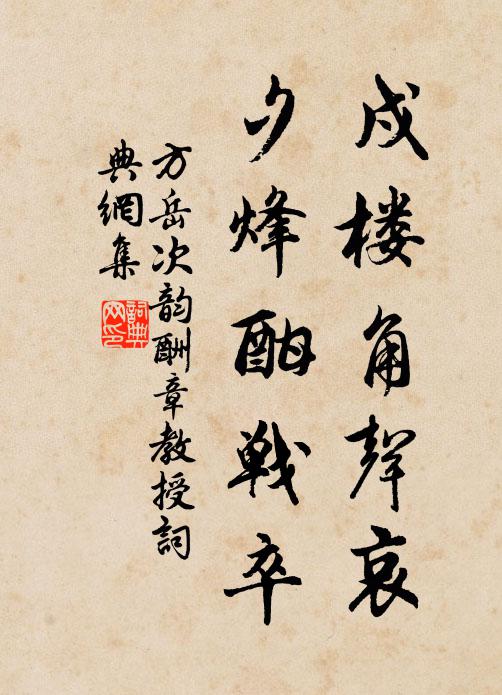 戍楼角聲哀
夕烽酣戰卒
方岳次韵酬章教授詞
典網集
詞典
网印